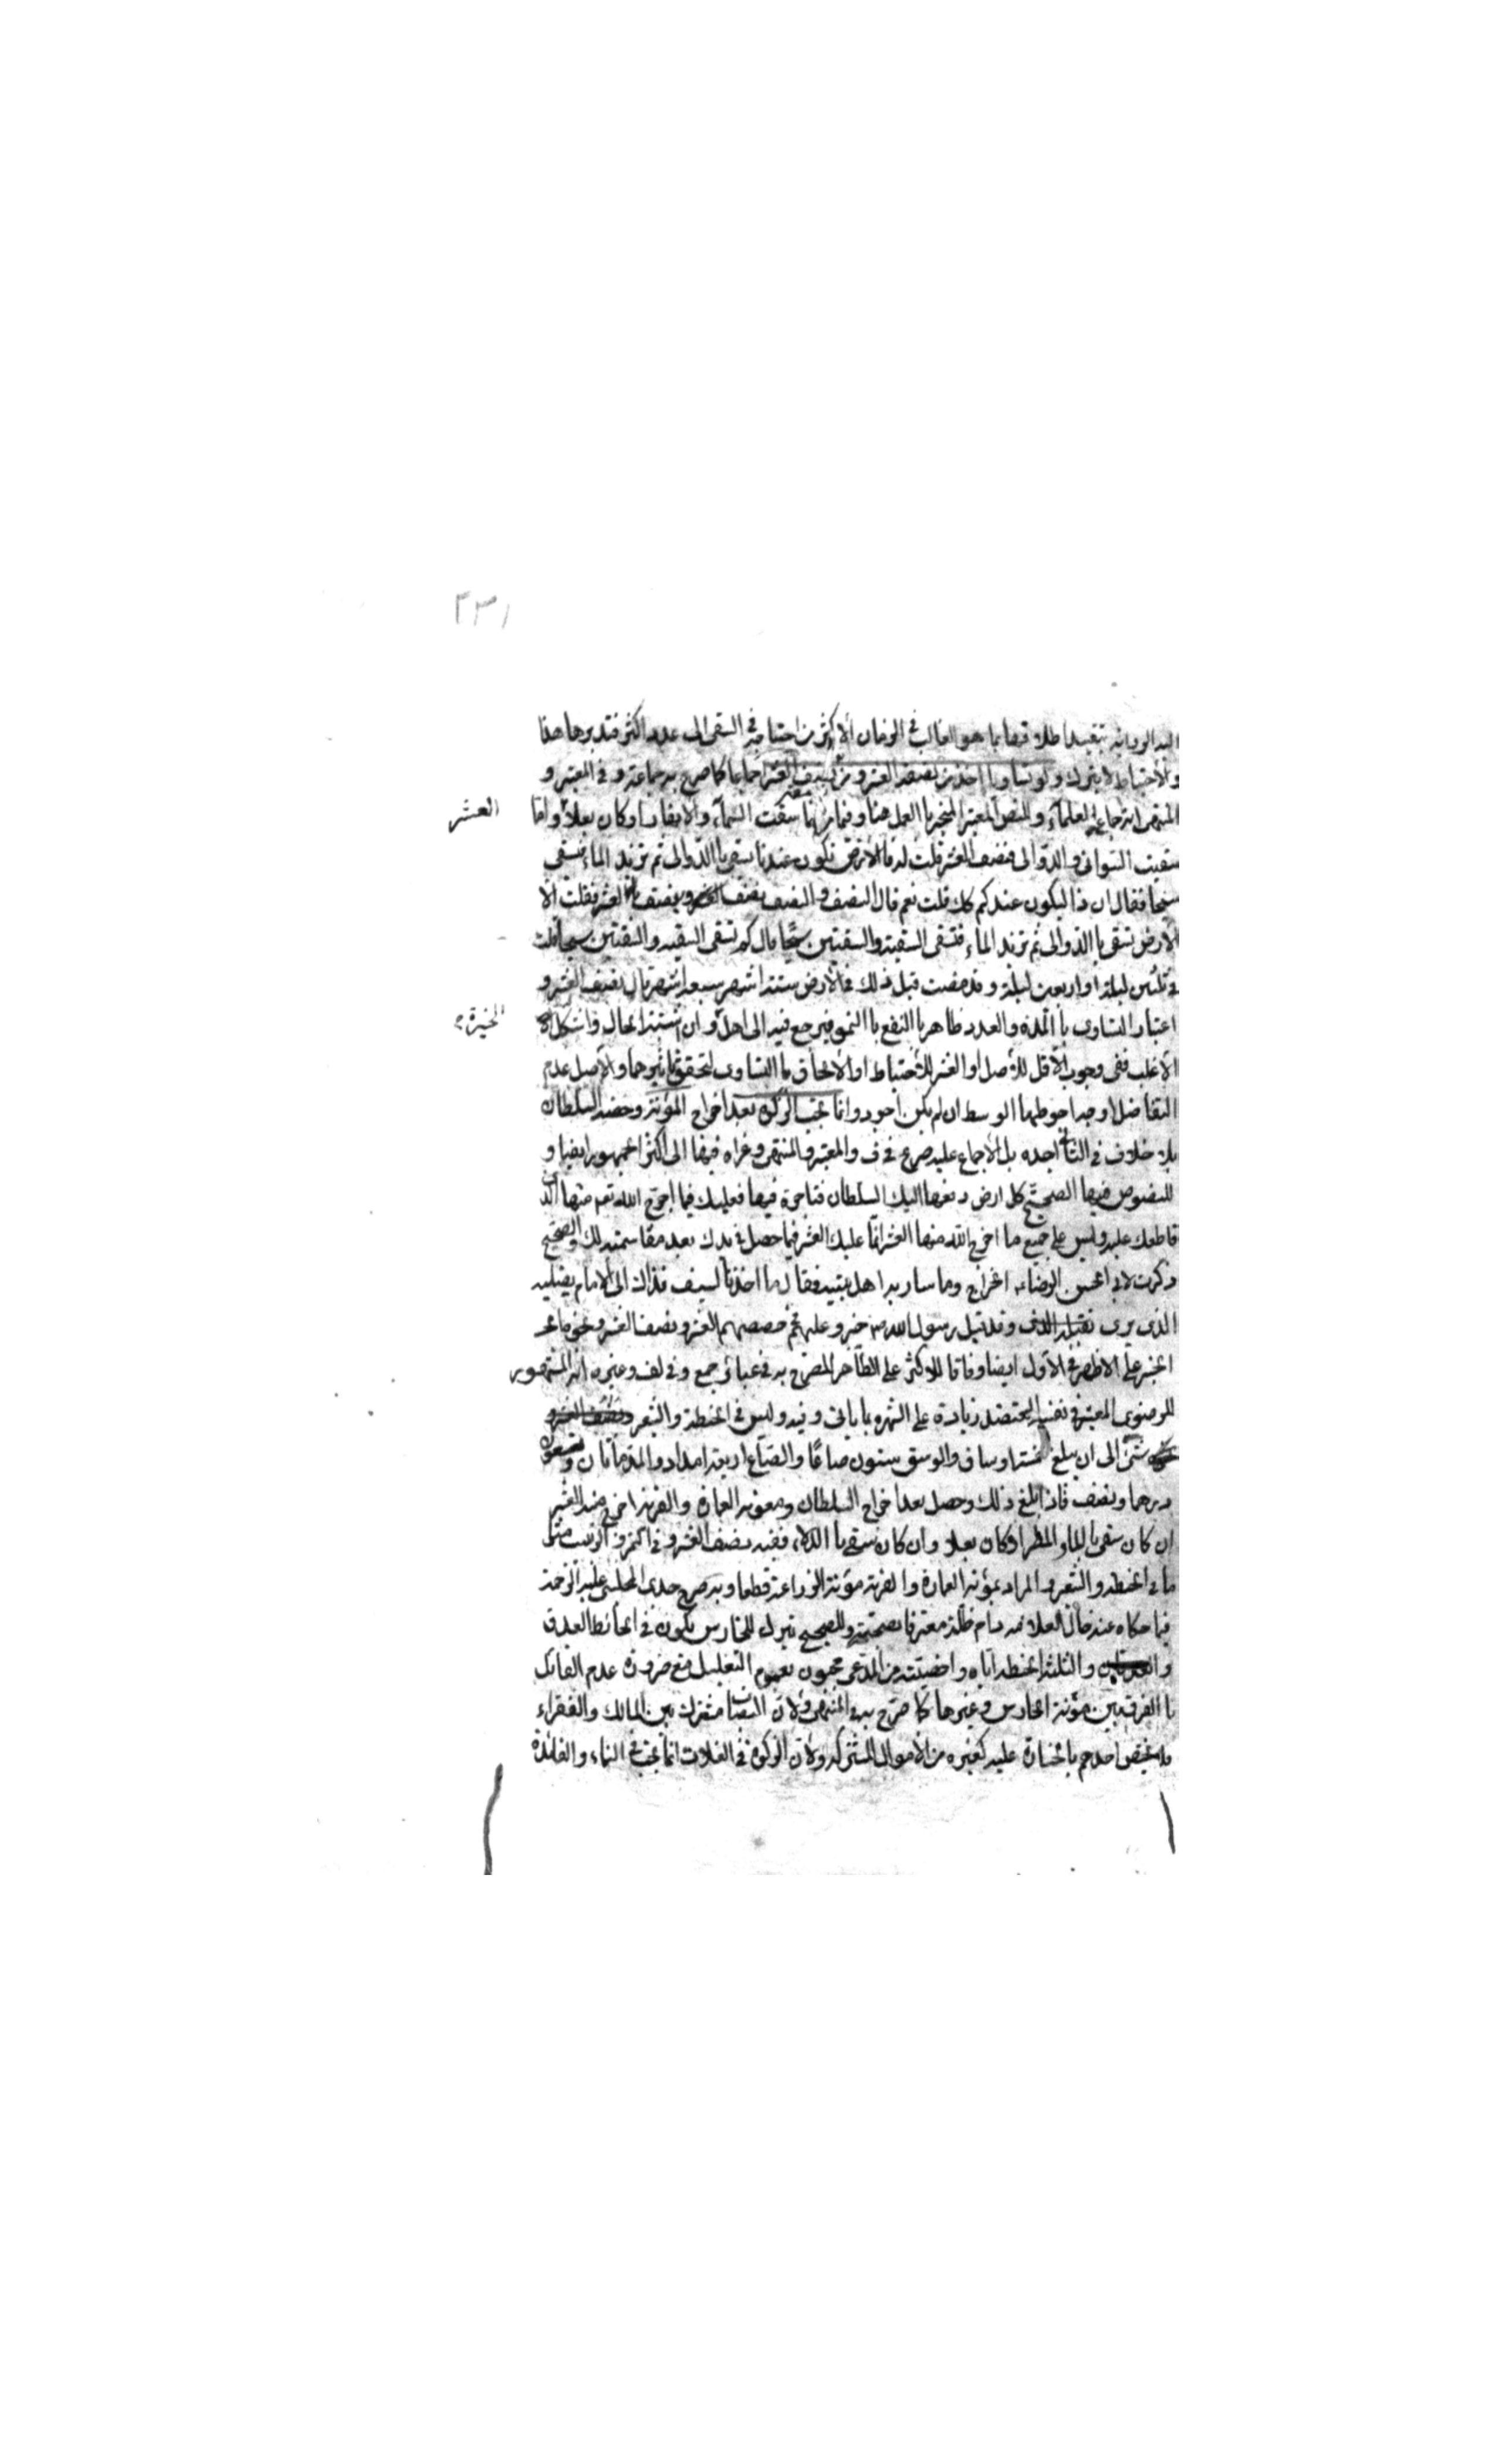 ٢٣١
الرواية بتقييد اطلاقها بما هو الغالب في الزمان الاكثر من احتياجه في السقى الى عدد اكثر فتدبرها هذا
والاحتياط لا يترك ولو تساويا اخذ من نصفه العشر ومن نصفه نصف العشر اجماعا كما صرح به جماعة وفي المعتبر و
المنتهى انه اجماع العلماء وللنص المعتبر المنجبر بالعمل هنا وفيما مر فيما سقت السماء والانهار او كان بعلا واما
العشر
سقيت السوانى والدوالى فنصف العشر قلت له فالارض تكون عندنا تسقى بالدوالى ثم تزيد الماء فتسقى
سيحا فقال ان ذا ليكون عندكم كك قلت نعم قال النصف والنصف نصف بنصف العشر ونصف بالعشر فقلت
الارض تسقى بالدوالى ثم تزيد الماء فتسقى السقية والسقيتين سيحا قال كم تسقى السقية والسقيتين سيحا قلت
في ثلثين ليلة او اربعين ليلة وقد مضت قبل ذلك في الارض ستة اشهر سبعة اشهر قال نصف العشر و
اعتبار التساوى بالمدة والعدد ظاهر بالنفع بالنمو فيرجع فيه الى اهل وان اشتبه الحال واشكل
الخبرة
الاغلب ففى وجوب الاقل للاصل او العشر للاحتياط او الالحاق بالتساوى لتحقق تاثيرهما والاصل عدم
التفاضل اوجه احوطها الوسط ان لم يكن اجود وانما تجب الزكوة بعد اخراج المؤنة وحصة السلطان
بلا خلاف في الثانى اجده بل الاجماع عليه صرح في ف والمعتبر والمنتهى وعزاه فيهما الى اكثر الجمهور ايضا و
للنصوص فيها الصحيح كل ارض دفعها اليك السلطان فتاجرته فيها فعليك فيما اخرج الله تعم منها الذى
قاطعك عليه وليس على جميع ما اخرج الله منها العشر انما عليك العشر فيما حصل في يدك بعد مقاسمته لك والصحيح
ذكرت لابى الحسن الرضاء الخراج وما سار به اهل بيته فقال ما اخذ بالسيف فذاك الى الامام يقبله
الذى يرى وقد قبل رسول الله ص خيبر وعليهم في حصصهم العشر ونصف العشر ونحوهما
الخبر على الاظهر في الاول ايضا وفاقا للاكثر على الظاهر المصرح به في عبائر جمع وفي لف وغيره انه المشهور
للرضوى المعتبر في نفسه المعتضد زيادة على الشهرة بما ياتى وفيه وليس في الحنطة والشعير
شئ الى ان يبلغ خمسة اوساق والوسق ستون صاعا والصاع اربعة امداد والمد مائتان وتسعون
درهما ونصف فاذا بلغ ذلك وحصل بعد اخراج السلطان ومعونة العمارة والقرية اخرج منه العشر
ان كان سقى بالماء المطر او كان بعلا وان كان سقى بالدلاء ففيه نصف العشر وفي التمر والزبيب مثل
ما في الحنطة والشعير والمراد بمؤنة العمارة والقرية مؤنة الزراعة قطعا وبه صرح جدى المجلسى عليه الرحمة
فيما حكاه عنه خالى العلامة دام ظله معترفا بصحته وللصحيح يترك للحارس يكون في الحائط العذق
والعذقان والثلثة لحفظه اياه واخصيته من المدعى مجبور بعموم التعليل مع ضرورة عدم القائل
بالفرق بين مؤنة الحارس وغيرها كما صرح به في المنتهى ولان النصاب مشترك بين المالك والفقراء
فلا يختص احدهم بالخسارة عليه كغيره من الاموال المشتركة ولان الزكوة في الغلات انما تجب في النماء والفائدة